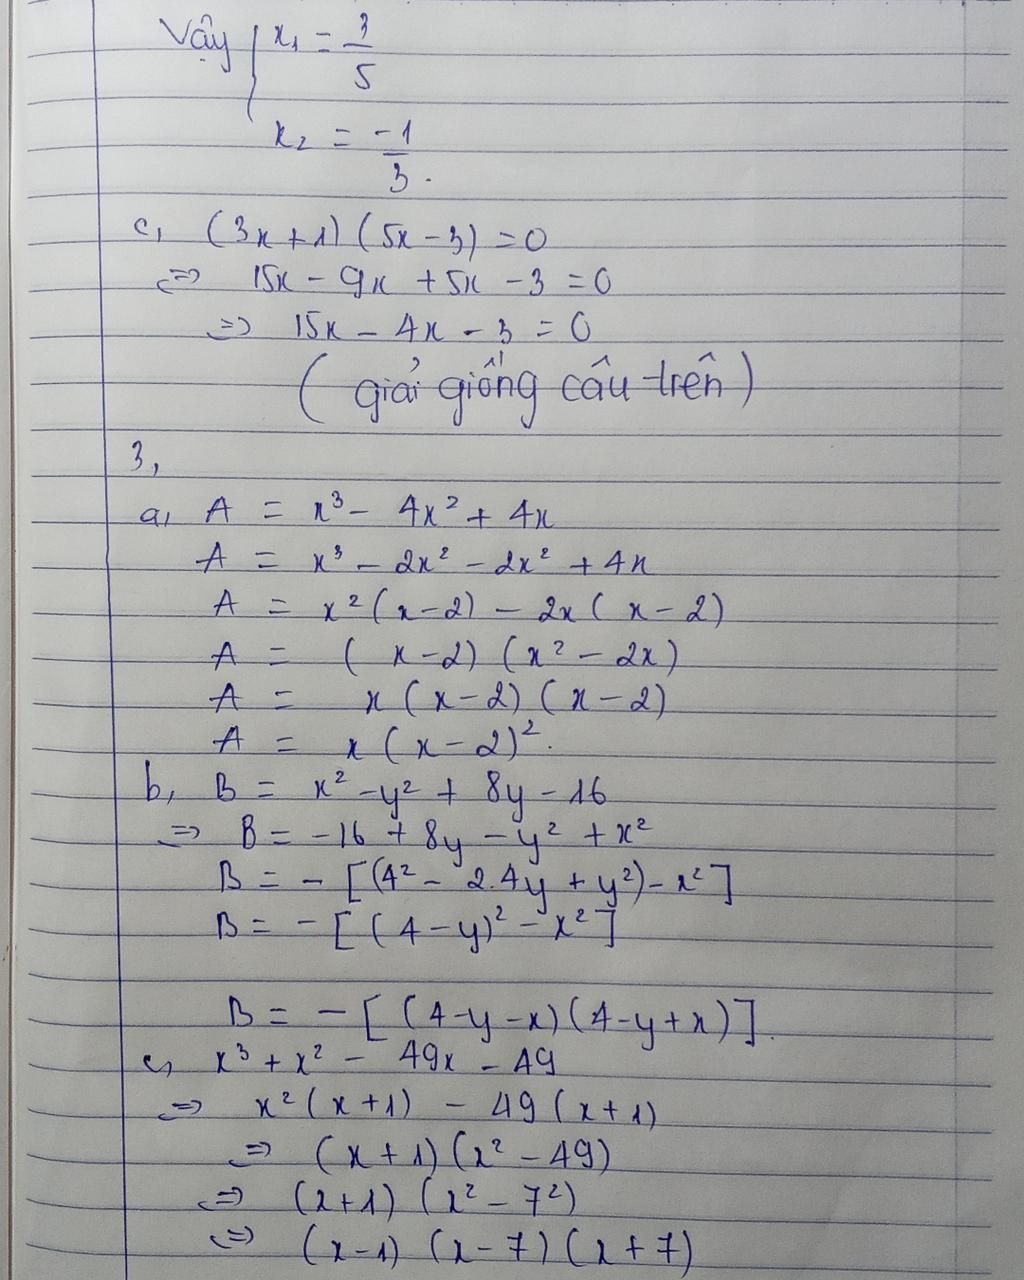 Vậy { x₁ = 3/5
x₂ = -1/3.
c, (3x+1)(5x-3) = 0
<=> 15x - 9x + 5x - 3 = 0
=> 15x - 4x - 3 = 0
( giải giống câu trên )
3,
a, A = x³ - 4x² + 4x
A = x³ - 2x² - 2x² + 4x
A = x²(x-2) - 2x(x-2)
A = (x-2)(x² - 2x)
A = x(x-2)(x-2)
A = x(x-2)².
b, B = x² - y² + 8y - 16
=> B = -16 + 8y - y² + x²
B = -[(4² - 2.4y + y²) - x²]
B = -[(4-y)² - x²]
B = -[(4-y-x)(4-y+x)].
c, x³ + x² - 49x - 49
=> x²(x+1) - 49(x+1)
=> (x+1)(x² - 49)
=> (x+1)(x² - 7²)
<=> (x-1)(x-7)(x+7)